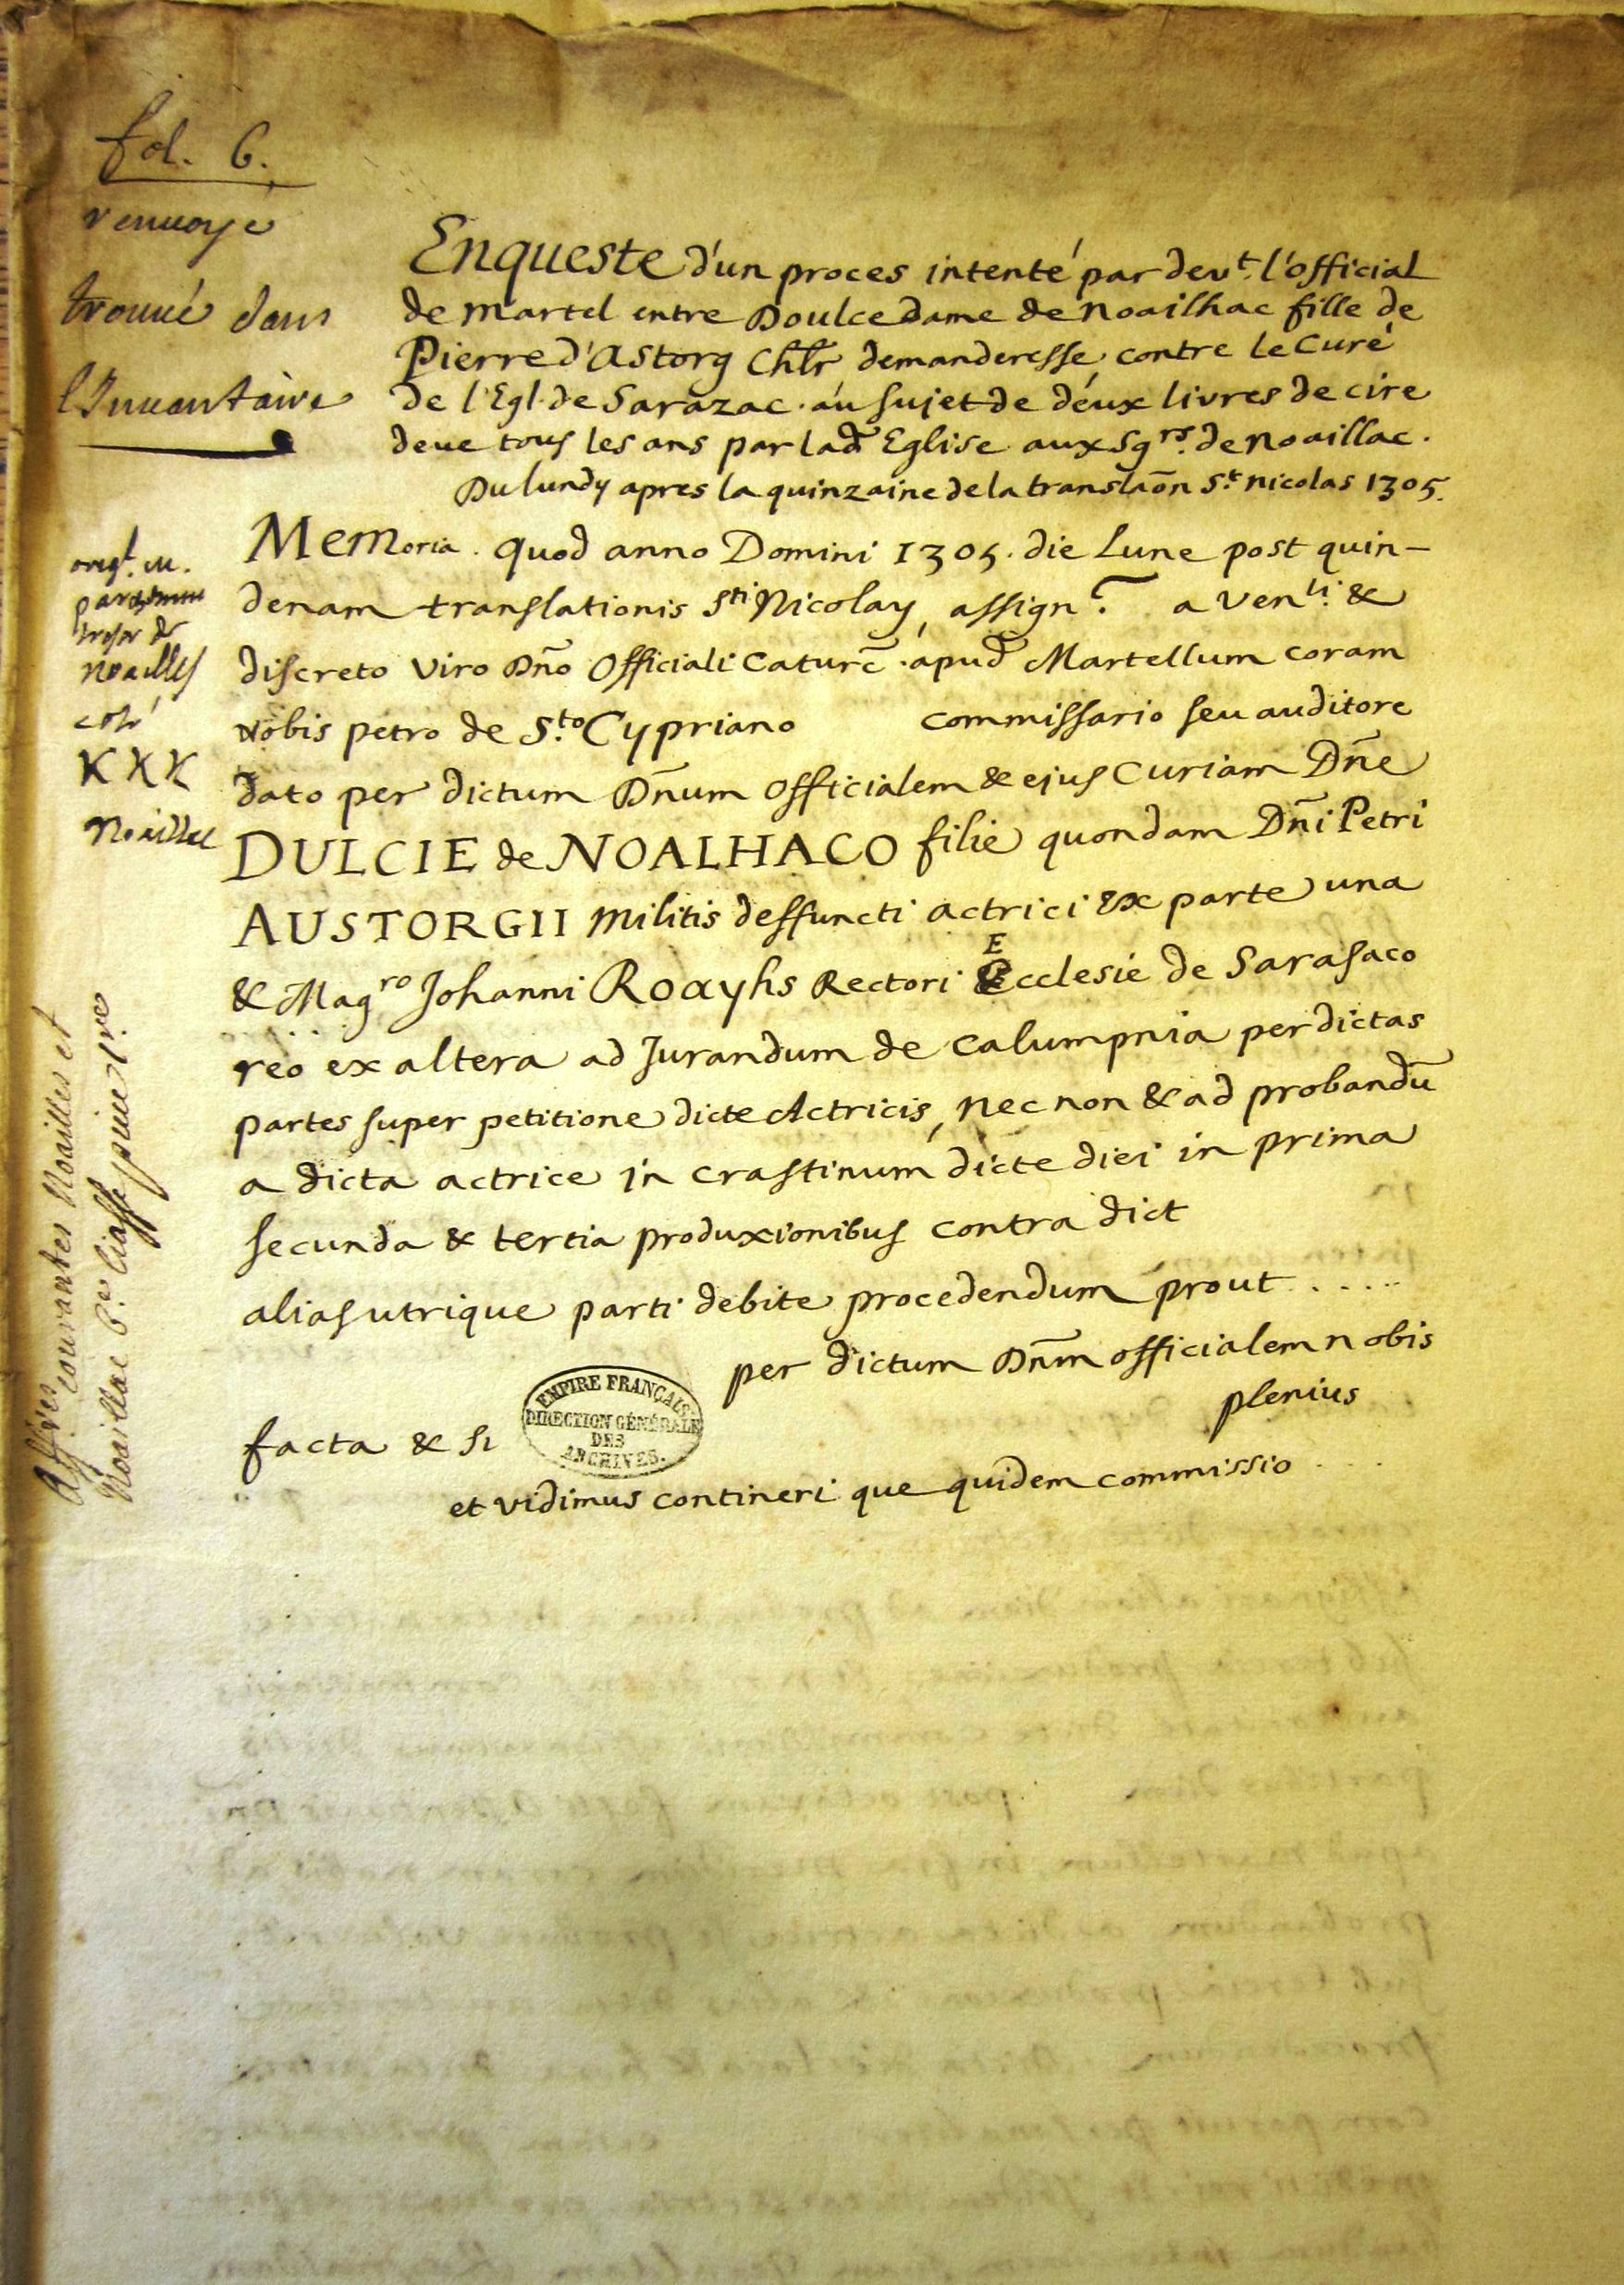 fol. 6.
renuoyé
trouué dans
l'Inuantaire
Enqueste d'un proces intenté par devt. l'official
de martel entre Doulce dame de Noailhac fille de
Pierre d'Astorg Chlr demanderesse, contre le Curé
de l'Egl. de Sarazac. au sujet de deux livres de cire
deue tous les ans par lad Eglise aux Sgrs. de Noaillac.
Du lundy apres la quinzaine de la translaõn St. Nicolas 1305.
origl. en
parchemin
tresor de
Noailles
coté
KKK
Noaillac
Memoria. quod anno Domini 1305. die Lune post quin-
denam translationis Sti Nicolay, assign. a Venli. &
discreto viro Dño Officiali Caturc̃. apud Martellum coram
nobis petro de S.to Cypriano commissario seu auditore
dato per dictum Dñum Officialem & ejus Curiam Dñe
DULCIE de NOALHACO filie quondam Dñi Petri
AUSTORGII militis deffuncti actrici ex parte una
& Magro Johanni Roayhs Rectori Ecclesie de Sarasaco
reo ex altera ad Jurandum de calumpnia per dictas
partes super petitione dicte Actricis, nec non & ad probandũ
a dicta actrice in crastinum dicte diei in prima
secunda & tertia produxionibus contra dict
alias utrique parti debite procedendum prout .....
per dictum Dñm officialem nobis
plenius
facta & si
et vidimus contineri que quidem commissio ....
EMPIRE FRANÇAIS.
DIRECTION GÉNÉRALE
DES
ARCHIVES.
Affres courantes Noailles et
Noaillac 6e. liasse